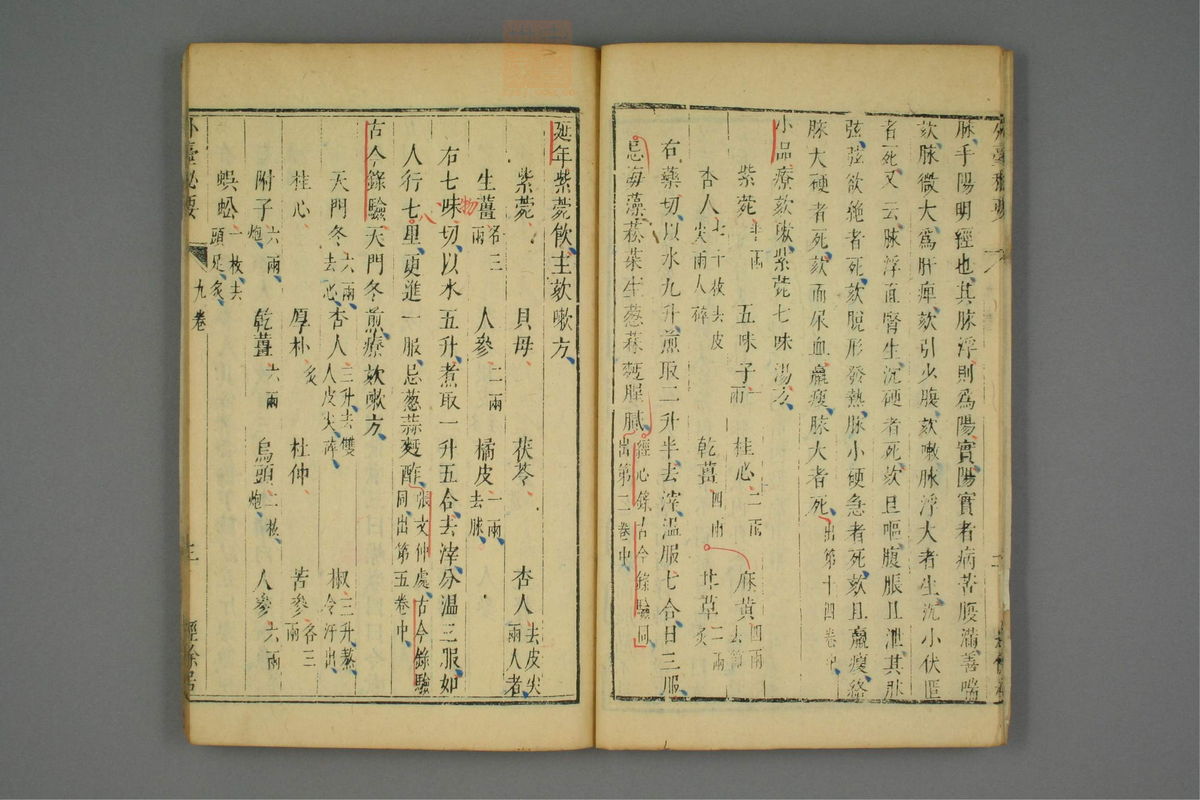 脉手陽明經也其脉浮則爲陽實陽實者病苦腹滿善喘
欬脉微大爲肝痺欬引少腹欬嗽脉浮大者生沉小伏匿
者死又云脉浮直腎生沉硬者死欬且嘔腹脹且泄其脉
弦弦欲絶者死欬脫形發熱脉小硬急者死欬且羸瘦絡
脉大硬者死欬而尿血羸瘦脉大者死出第十四卷中
小品療欬嗽紫菀七味湯方
紫菀半兩 五味子一兩 桂心二兩 麻黄四兩去節
杏人七十枚去皮尖兩人碎 乾薑四兩 甘草二兩炙
右藥切以水九升煎取二升半去滓溫服七合日三服
忌海藻菘菜生葱蒜麫腥膩經心錄古今錄驗同出第二卷中
延年紫菀飲主欬嗽方
紫菀 貝母 茯苓 杏人去皮尖兩人者
生薑各三兩 人參二兩 橘皮一兩去脉
右七味切以水五升煮取一升五合去滓分溫三服如
人行七八里更進一服忌葱蒜麫酢張文仲處古今錄驗同出第五卷中
古今錄驗天門冬煎療欬嗽方
天門冬六兩去心 杏人三升去雙人皮尖碎 椒三升熬令汗出
桂心 厚朴炙 杜仲 苦參各三兩
附子六兩炮 乾薑六兩 烏頭二枚炮 人參六兩
蜈蚣一枚去頭足炙
外臺祕要
九卷
三
經餘居